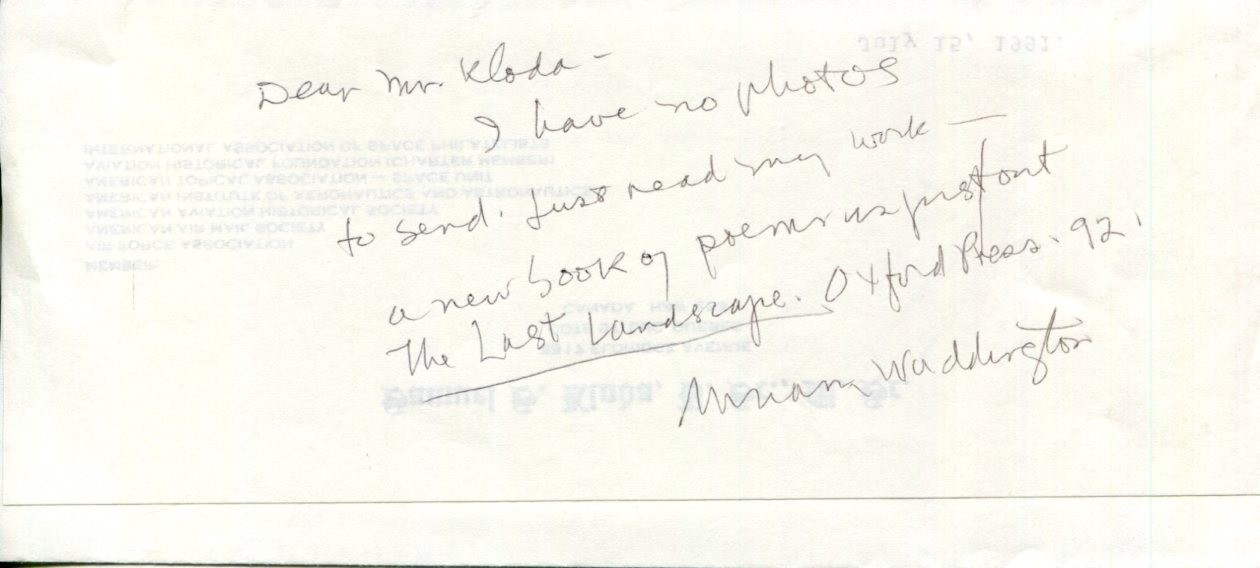 Dear Mr. Kloda —
I have no photos
to send. Just read my work —
a new book of poems is just out
The Last Landscape. Oxford Press. 92.
Miriam Waddington
July 15, 1991.
INTERNATIONAL ASSOCIATION OF SPACE PHILATELISTS
AVIATION HISTORICAL FOUNDATION (CHARTER MEMBER)
AMERICAN TOPICAL ASSOCIATION — SPACE UNIT
AMERICAN INSTITUTE OF AERONAUTICS AND ASTRONAUTICS
AMERICAN AVIATION HISTORICAL SOCIETY
AMERICAN AIR MAIL SOCIETY
AIR FORCE ASSOCIATION
MEMBER:
CANADA
AVENUE
Samuel S. Kloda,